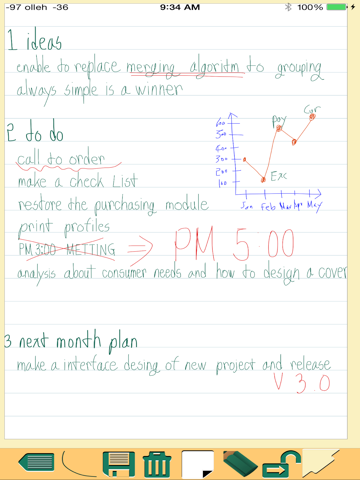 -97 olleh -36 9:34 AM 100%
1 ideas
enable to replace merging algoritm to grouping
always simple is a winner
2 to do
call to order
make a check List
restore the purchasing module
print profiles
PM 3:00 METTING ⇒ PM 5:00
analysis about consumer needs and how to design a cover
600
500
400
300
200
100
pay
Car
Exc
Jan Feb Mar Apr May
3 next month plan
make a interface desing of new project and release
V 3 0